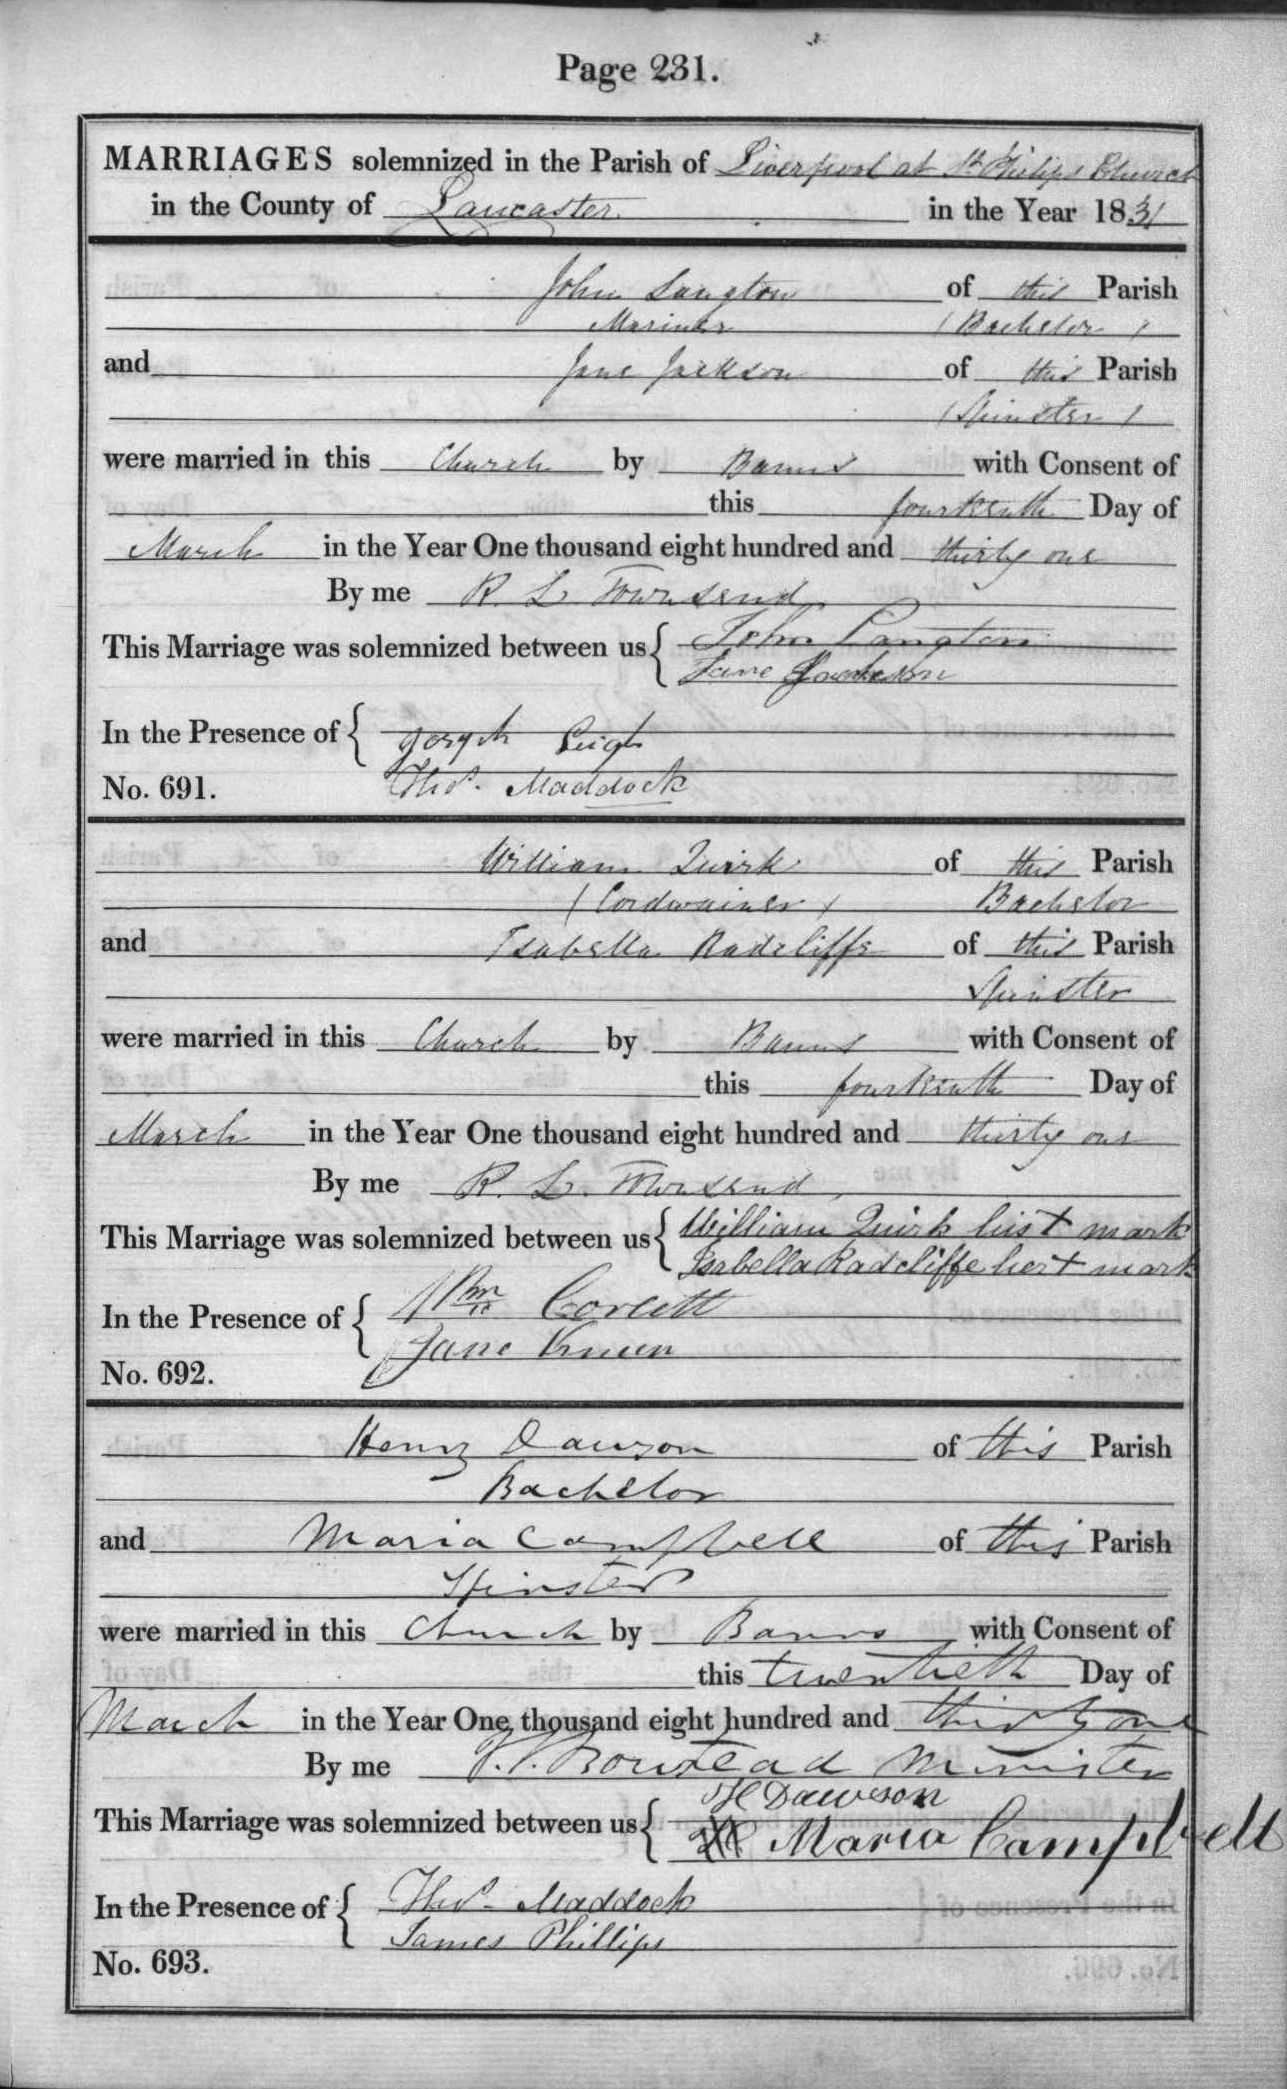 Page 231.
MARRIAGES solemnized in the Parish of Liverpool at St Philips Church
in the County of Lancaster in the Year 1831
John Langton of this Parish
Mariner (Bachelor)
and Jane Jackson of this Parish
(Spinster)
were married in this Church by Banns with Consent of
this fourteenth Day of
March in the Year One thousand eight hundred and thirty one
By me R. L. Townsend
This Marriage was solemnized between us { John Langton
Jane Jackson
In the Presence of { Joseph Leigh
Thos. Maddock
No. 691.
William Quirk of this Parish
(Cordwainer) Bachelor
and Isabella Radcliffe of this Parish
Spinster
were married in this Church by Banns with Consent of
this fourteenth Day of
March in the Year One thousand eight hundred and thirty one
By me R. L. Townsend
This Marriage was solemnized between us { William Quirk his + mark
Isabella Radcliffe her + mark
In the Presence of { Wm Corlett
Jane Kneen
No. 692.
Henry Dawson of this Parish
Bachelor
and Maria Campbell of this Parish
Spinster
were married in this Church by Banns with Consent of
this twentieth Day of
March in the Year One thousand eight hundred and thirty one
By me Bowstead Minister
This Marriage was solemnized between us { H Dawson
Maria Campbell
In the Presence of { Thos. Maddock
James Phillips
No. 693.